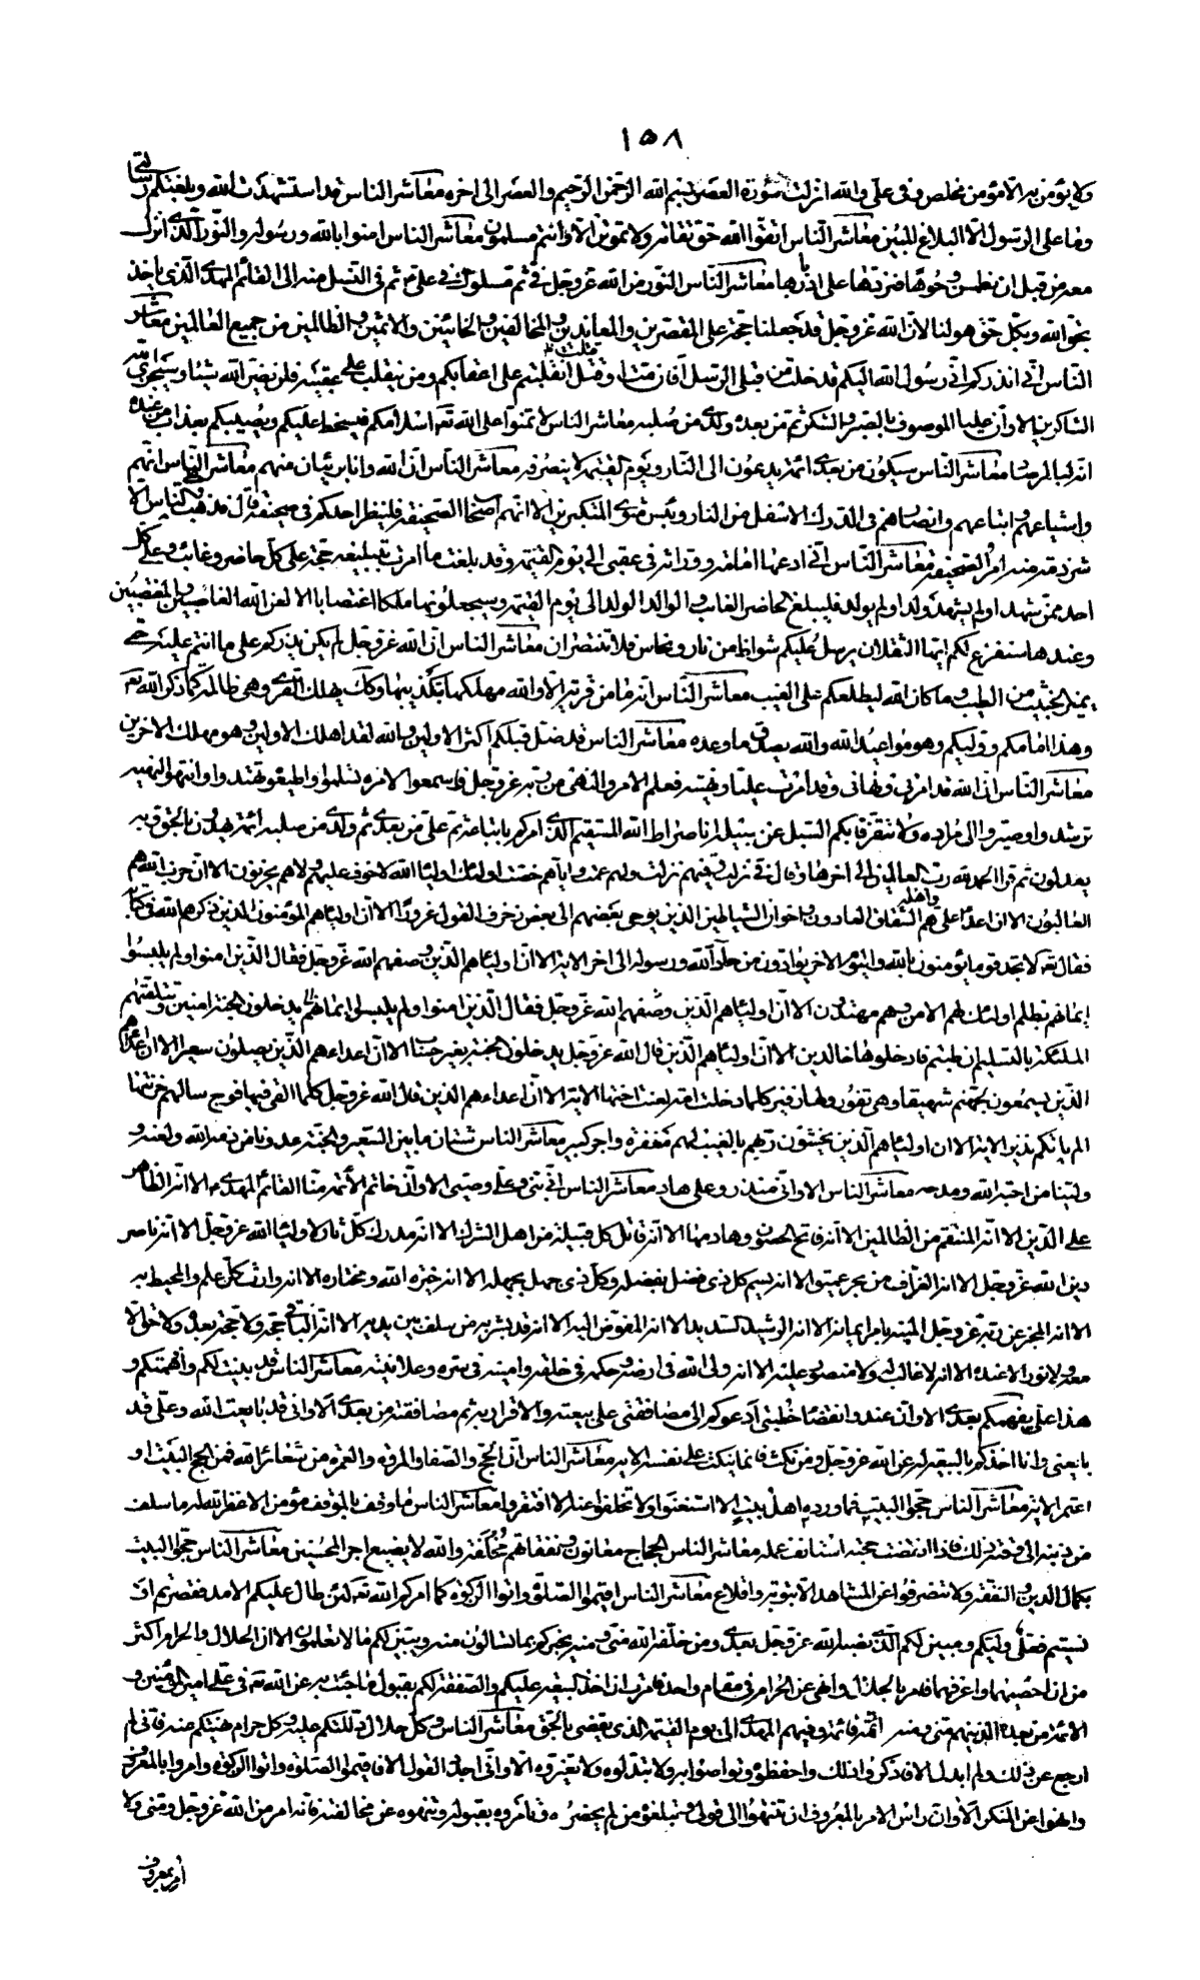 ١٥٨
ولا يؤمن به الا مؤمن مخلص وفى على والله انزلت سورة العصر بسم الله الرحمن الرحيم والعصر الى اخره معاشر الناس قد استشهدت الله وبلغتكم رسالتى
وما على الرسول الا البلاغ المبين معاشر الناس اتقوا الله حق تقاته ولا تموتن الا وانتم مسلمون معاشر الناس امنوا بالله ورسوله والنور الذى انزل
معه من قبل ان نطمس وجوها فنردها على ادبارها معاشر الناس النور من الله عزوجل فى ثم مسلوك فى على ثم فى النسل منه الى القائم المهدى الذى ياخذ
بحق الله وبكل حق هو لنا لان الله عزوجل قد جعلنا حجة على المقصرين والمعاندين والمخالفين والخائنين والاثمين والظالمين من جميع العالمين معاشر
الناس انى انذركم انى رسول الله اليكم قد خلت من قبلى الرسل افان مت او قتلت انقلبتم على اعقابكم ومن ينقلب على عقبيه فلن يضر الله شيئا وسيجزى الله
الشاكرين الا وان عليا الموصوف بالصبر والشكر ثم من بعده ولدى من صلبه معاشر الناس لا تمنوا على الله تعالى اسلامكم فيسخط عليكم ويصيبكم بعذاب من عنده
انه لبالمرصاد معاشر الناس سيكون من بعدى ائمة يدعون الى النار ويوم القيمة لا ينصرون معاشر الناس ان الله وانا بريئان منهم معاشر الناس انهم
واشياعهم واتباعهم وانصارهم فى الدرك الاسفل من النار وبئس مثوى المتكبرين الا انهم اصحاب الصحيفة فلينظر احدكم فى صحيفته قال فذهب على الناس الا
شرذمة منهم امر الصحيفة معاشر الناس انى ادعها امامة ووراثة فى عقبى الى يوم القيمة وقد بلغت ما امرت بتبليغه حجة على كل حاضر وغائب وعلى كل
احد ممن شهد او لم يشهد ولد او لم يولد فليبلغ الحاضر الغائب والوالد الولد الى يوم القيمة وسيجعلونها ملكا اغتصابا الا لعن الله الغاصبين والمغتصبين
وعندها سنفرغ لكم ايها الثقلان يرسل عليكم شواظ من نار ونحاس فلا تنتصران معاشر الناس ان الله عزوجل لم يكن يذركم على ما انتم عليه حتى
يميز الخبيث من الطيب وما كان الله ليطلعكم على الغيب معاشر الناس انه ما من قرية الا والله مهلكها بتكذيبها وكذلك يهلك القرى وهى ظالمة كما ذكر الله تع
وهذا امامكم ووليكم وهو مواعيد الله والله يصدق ما وعده معاشر الناس قد ضل قبلكم اكثر الاولين والله لقد اهلك الاولين وهو مهلك الاخرين
معاشر الناس ان الله قد امرنى ونهانى وقد امرت عليا ونهيته فعلم الامر والنهى من ربه عزوجل فاسمعوا لامره تسلموا واطيعوه تهتدوا وانتهوا لنهيه
ترشدوا وصيروا الى مراده ولا تتفرق بكم السبل عن سبيله انا صراط الله المستقيم الذى امركم باتباعه ثم على من بعدى ثم ولدى من صلبه ائمة يهدون بالحق وبه
يعدلون ثم قرا الحمد لله رب العالمين الى اخرها وقال فى نزلت وفيهم نزلت ولهم عمت واياهم خصت اولئك اولياء الله لا خوف عليهم ولا هم يحزنون الا ان حزب الله هم
الغالبون الا ان اعداء على هم اهل الشقاق العادون واخوان الشياطين الذين يوحى بعضهم الى بعض زخرف القول غرورا الا ان اولياءهم المؤمنون الذين ذكرهم الله فى كتابه
فقال تع لا تجد قوما يؤمنون بالله واليوم الاخر يوادون من حاد الله ورسوله الى اخر الاية الا ان اولياءهم الذين وصفهم الله عزوجل فقال الذين امنوا ولم يلبسوا
ايمانهم بظلم اولئك لهم الامن وهم مهتدون الا ان اولياءهم الذين وصفهم الله عزوجل فقال الذين امنوا ولم يلبسوا ايمانهم الذين يدخلون الجنة امنين وتتلقيهم
الملئكة بالتسليم ان طبتم فادخلوها خالدين الا ان اولياءهم الذين قال الله عزوجل يدخلون الجنة بغير حساب الا ان اعداءهم الذين يصلون سعيرا الا ان اعداءهم
الذين يسمعون لجهنم شهيقا وهى تفور ولها زفير كلما دخلت امة لعنت اختها الاية الا ان اعداءهم الذين قال الله عزوجل كلما القى فيها فوج سالهم خزنتها
الم ياتكم نذير الاية الا ان اولياءهم الذين يخشون ربهم بالغيب لهم مغفرة واجر كبير معاشر الناس شتان ما بين السعير والجنة عدونا من ذمه الله ولعنه و
ولينا من احبه الله ومدحه معاشر الناس الا وانى منذر وعلى هاد معاشر الناس انى نبى وعلى وصيى الا وان خاتم الائمة منا القائم المهدى الا انه الظاهر
على الدين الا انه المنتقم من الظالمين الا انه فاتح الحصون وهادمها الا انه قاتل كل قبيلة من اهل الشرك الا انه مدرك كل ثار لاولياء الله عزوجل الا انه ناصر
دين الله عزوجل الا انه الغراف من بحر عميق الا انه يسم كل ذى فضل بفضله وكل ذى جهل بجهله الا انه خيرة الله ومختاره الا انه وارث كل علم والمحيط به
الا انه المخبر عن ربه عزوجل المنبه بامر ايمانه الا انه الرشيد السديد الا انه المفوض اليه الا انه قد بشر به من سلف بين يديه الا انه الباقى حجة ولا حجة بعده ولا حق الا
معه ولا نور الا عنده الا انه لا غالب له ولا منصور عليه الا انه ولى الله فى ارضه وحكمه فى خلقه وامينه فى سره وعلانيته معاشر الناس قد بينت لكم وافهمتكم و
هذا على يفهمكم بعدى الا وان عند انقضاء خطبتى ادعوكم الى مصافقتى على بيعته والاقرار به ثم مصافقته من بعدى الا وانى قد بايعت الله وعلى قد
بايعنى وانا اخذكم بالبيعة له عن الله عزوجل ومن نكث فانما ينكث على نفسه الاية معاشر الناس ان الحج والصفا والمروة والعمرة من شعائر الله فمن حج البيت او
اعتمر الاية معاشر الناس حجوا البيت فما ورده اهل بيت الا استغنوا ولا تخلفوا عنه الا افتقروا معاشر الناس ما وقف بالموقف مؤمن الا غفر الله له ما سلف
من ذنبه الى وقته ذلك فاذا انقضت حجته استانف عمله معاشر الناس الحجاج معانون ونفقاتهم مخلفة والله لا يضيع اجر المحسنين معاشر الناس حجوا البيت
بكمال الدين والتفقه ولا تنصرفوا عن المشاهد الا بتوبة واقلاع معاشر الناس اقيموا الصلوة واتوا الزكوة كما امركم الله تع لئن طال عليكم الامد فقصرتم او
نسيتم فعلى وليكم ومبين لكم الذى نصبه الله عزوجل بعدى ومن خلفه الله منى ومنه يخبركم بما تسالون منه ويبين لكم ما لا تعلمون الا ان الحلال والحرام اكثر
من ان احصيهما واعرفهما فامر بالحلال وانهى عن الحرام فى مقام واحد فامرت ان اخذ البيعة عليكم والصفقة لكم بقبول ما جئت به عن الله تع فى على امير المؤمنين و
الائمة من بعده الذين هم منى ومنه ائمة قائمة وفيهم المهدى الى يوم القيمة الذى يقضى بالحق معاشر الناس وكل حلال دللتكم عليه وكل حرام نهيتكم عنه فانى لم
ارجع عن ذلك ولم ابدل الا فاذكروا ذلك واحفظوه وتواصوا به ولا تبدلوه ولا تغيروه الا وانى اجدد القول الا فاقيموا الصلوة واتوا الزكوة وامروا بالمعروف
وانهوا عن المنكر الا وان راس الامر بالمعروف ان تنتهوا الى قولى وتبلغوه من لم يحضره وتامروه بقبوله وتنهوه عن مخالفته فانه امر من الله عزوجل ومنى ولا
امر بمعروف